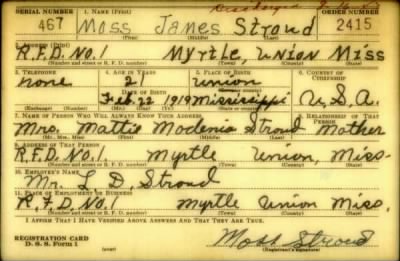 Discharged
SERIAL NUMBER 1. NAME (Print) ORDER NUMBER
467 Moss James Stroud 2415
(First) (Middle) (Last)
R.F.D. No. 1 Myrtle, Union Miss
(Number and street or R. F. D. number) (Town) (County) (State)
3. TELEPHONE 4. AGE IN YEARS 5. PLACE OF BIRTH 6. COUNTRY OF CITIZENSHIP
none 21 Union
DATE OF BIRTH (Town or county)
Feb. 22 1919 Mississippi U.S.A.
(Exchange) (Number) (Mo.) (Day) (Yr.) (State or country)
7. NAME OF PERSON WHO WILL ALWAYS KNOW YOUR ADDRESS 8. RELATIONSHIP OF THAT PERSON
Mrs. Mattie Modenia Stroud Mother
(Mr., Mrs., Miss) (First) (Middle) (Last)
9. ADDRESS OF THAT PERSON
R.F.D. No. 1 Myrtle Union, Miss.
(Number and street or R. F. D. number) (Town) (County) (State)
10. EMPLOYER'S NAME
Mr. L. D. Stroud
11. PLACE OF EMPLOYMENT OR BUSINESS
R.F.D. No. 1 Myrtle Union Miss.
(Number and street or R. F. D. number) (Town) (County) (State)
I AFFIRM THAT I HAVE VERIFIED ABOVE ANSWERS AND THAT THEY ARE TRUE.
REGISTRATION CARD
D. S. S. Form 1 (over) Moss Stroud
(Registrant's signature)